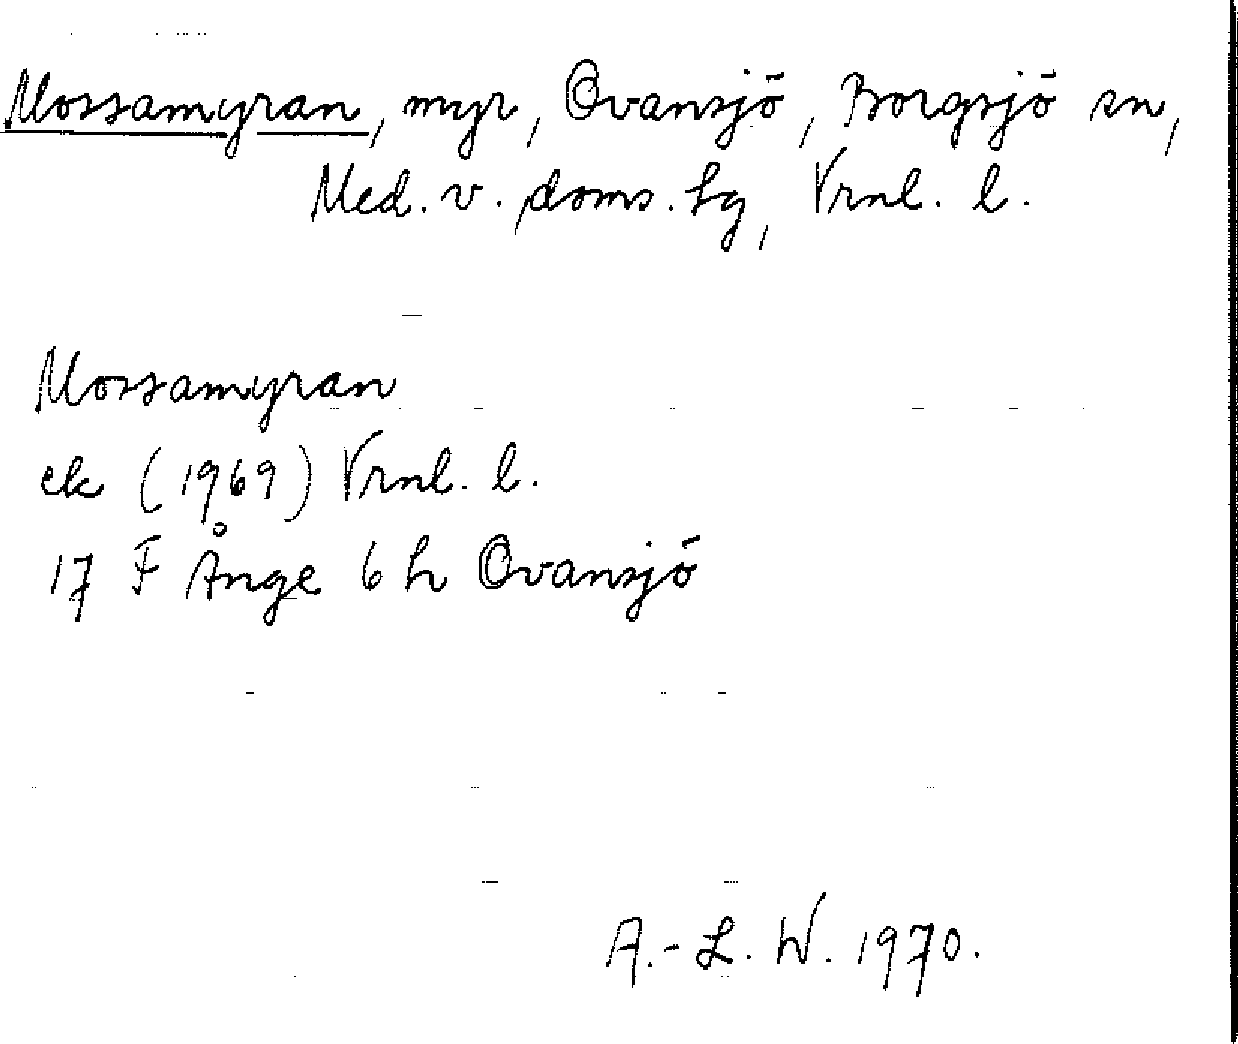 Mossamyran, myr, Ovansjö, Borgsjö sn,
Med. v. doms. hg, Vrnl. l.
Mossamyran
ek (1969) Vrnl. l.
17 F Ånge 6 h Ovansjö
A.-L. W. 1970.